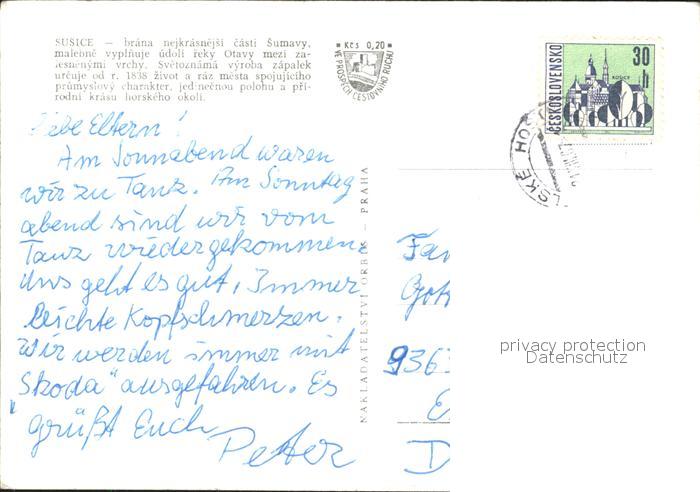 SUSICE — brána nejkrásnější části Šumavy,
malebně vyplňuje údolí řeky Otavy mezi za-
lesněnými vrchy. Světoznámá výroba zápalek
určuje od r. 1838 život a ráz města spojujícího
průmyslový charakter, jedinečnou polohu a pří-
rodní krásu horského okolí.
Kčs 0,20
VE PROSPĚCH CESTOVNÍHO RUCHU
ČESKOSLOVENSKO
30
h
KOŠICE
LSKÉ HOŠ
Liebe Eltern!
Am Sonnabend waren
wir zu Tanz. Am Sonntag
abend sind wir vom
Tanz wiedergekommen.
Uns geht es gut, Immer
leichte Kopfschmerzen.
Wir werden immer mit
"Skoda" ausgefahren. Es
grüßt Euch
Peter
NAKLADATELSTVÍ ORBIS — PRAHA
Fam
Gott
9363
E
D
privacy protection
Datenschutz